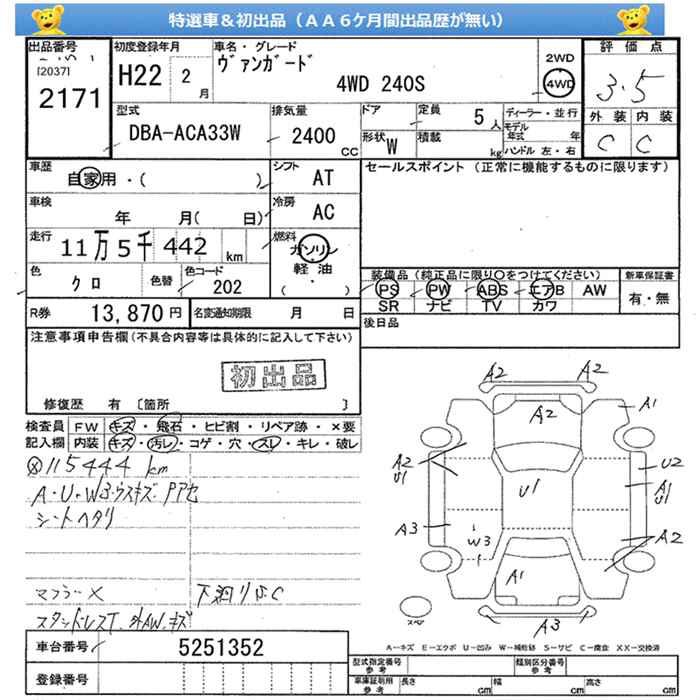 特選車&初出品(AA6ケ月間出品歴が無い)
出品番号 初度登録年月 車名・グレード 2WD 4WD 評価点
[2037]
2171 H22 2月 ヴァンガード 4WD 240S 3.5
型式 排気量 ドア 定員 5人 ディーラー・並行 外装 内装
DBA-ACA33W 2400CC 形状 W 積載 kg モデル年式 年 ハンドル 左・右 C C
車歴 自家用・( ) シフト AT セールスポイント(正常に機能するものに限ります)
車検 年 月( 日) 冷房 AC
走行 11万5千442km 燃料 ガソリン
軽油・( )
装備品(純正品に限り○をつけてください) 新車保証書
色 クロ 色替 色コード 202 PS PW ABS エアB AW 有・無
SR ナビ TV カワ
R券 13,870円 名変通知期限 月 日 後日品
注意事項申告欄(不具合内容等は具体的に記入して下さい)
初出品
修復歴 有 [箇所 ]
検査員 FW キズ・飛石・ヒビ割・リペア跡・×要
記入欄 内装 キズ・汚レ・コゲ・穴・スレ・キレ・破レ
115444km
A・U・W3・ウスキズ・
シートヘタリ
マフラーX 下廻りS.C
A2 A2
A2
A1
A2 U1
U2
A1 U1
U1
A3
W3
A2
A1
A3
スペア
A-キズ E-エクボ U-凹み W-補修跡 S-サビ C-腐食 XX-交換済
車台番号 5251352
登録番号
型式指定番号 参考 類別区分番号 参考
車庫証明用 参考 長さ cm 幅 cm 高さ cm